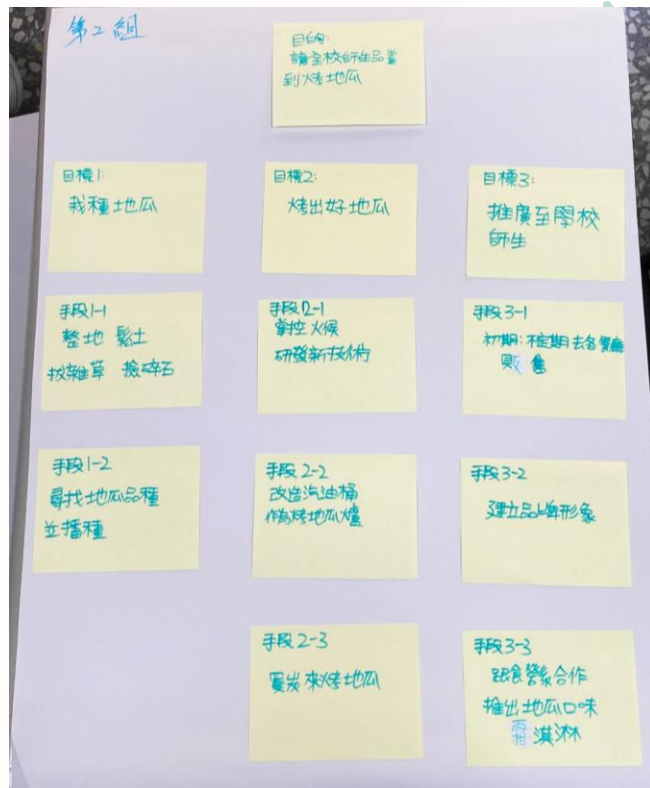 第2組
目的:
讓全校師生品嘗
到烤地瓜
目標1:
我種地瓜
目標2:
烤出好地瓜
目標3:
推廣至學校
師生
手段1-1
整地 鬆土
拔雜草 撿碎石
手段2-1
掌控火候
研發新技術
手段3-1
初期:不定期去各餐廳
販售
手段1-2
尋找地瓜品種
並播種
手段2-2
改造汽油桶
作為烤地瓜爐
手段3-2
建立品牌形象
手段2-3
買炭來烤地瓜
手段3-3
跟食營系合作
推出地瓜口味
霜淇淋